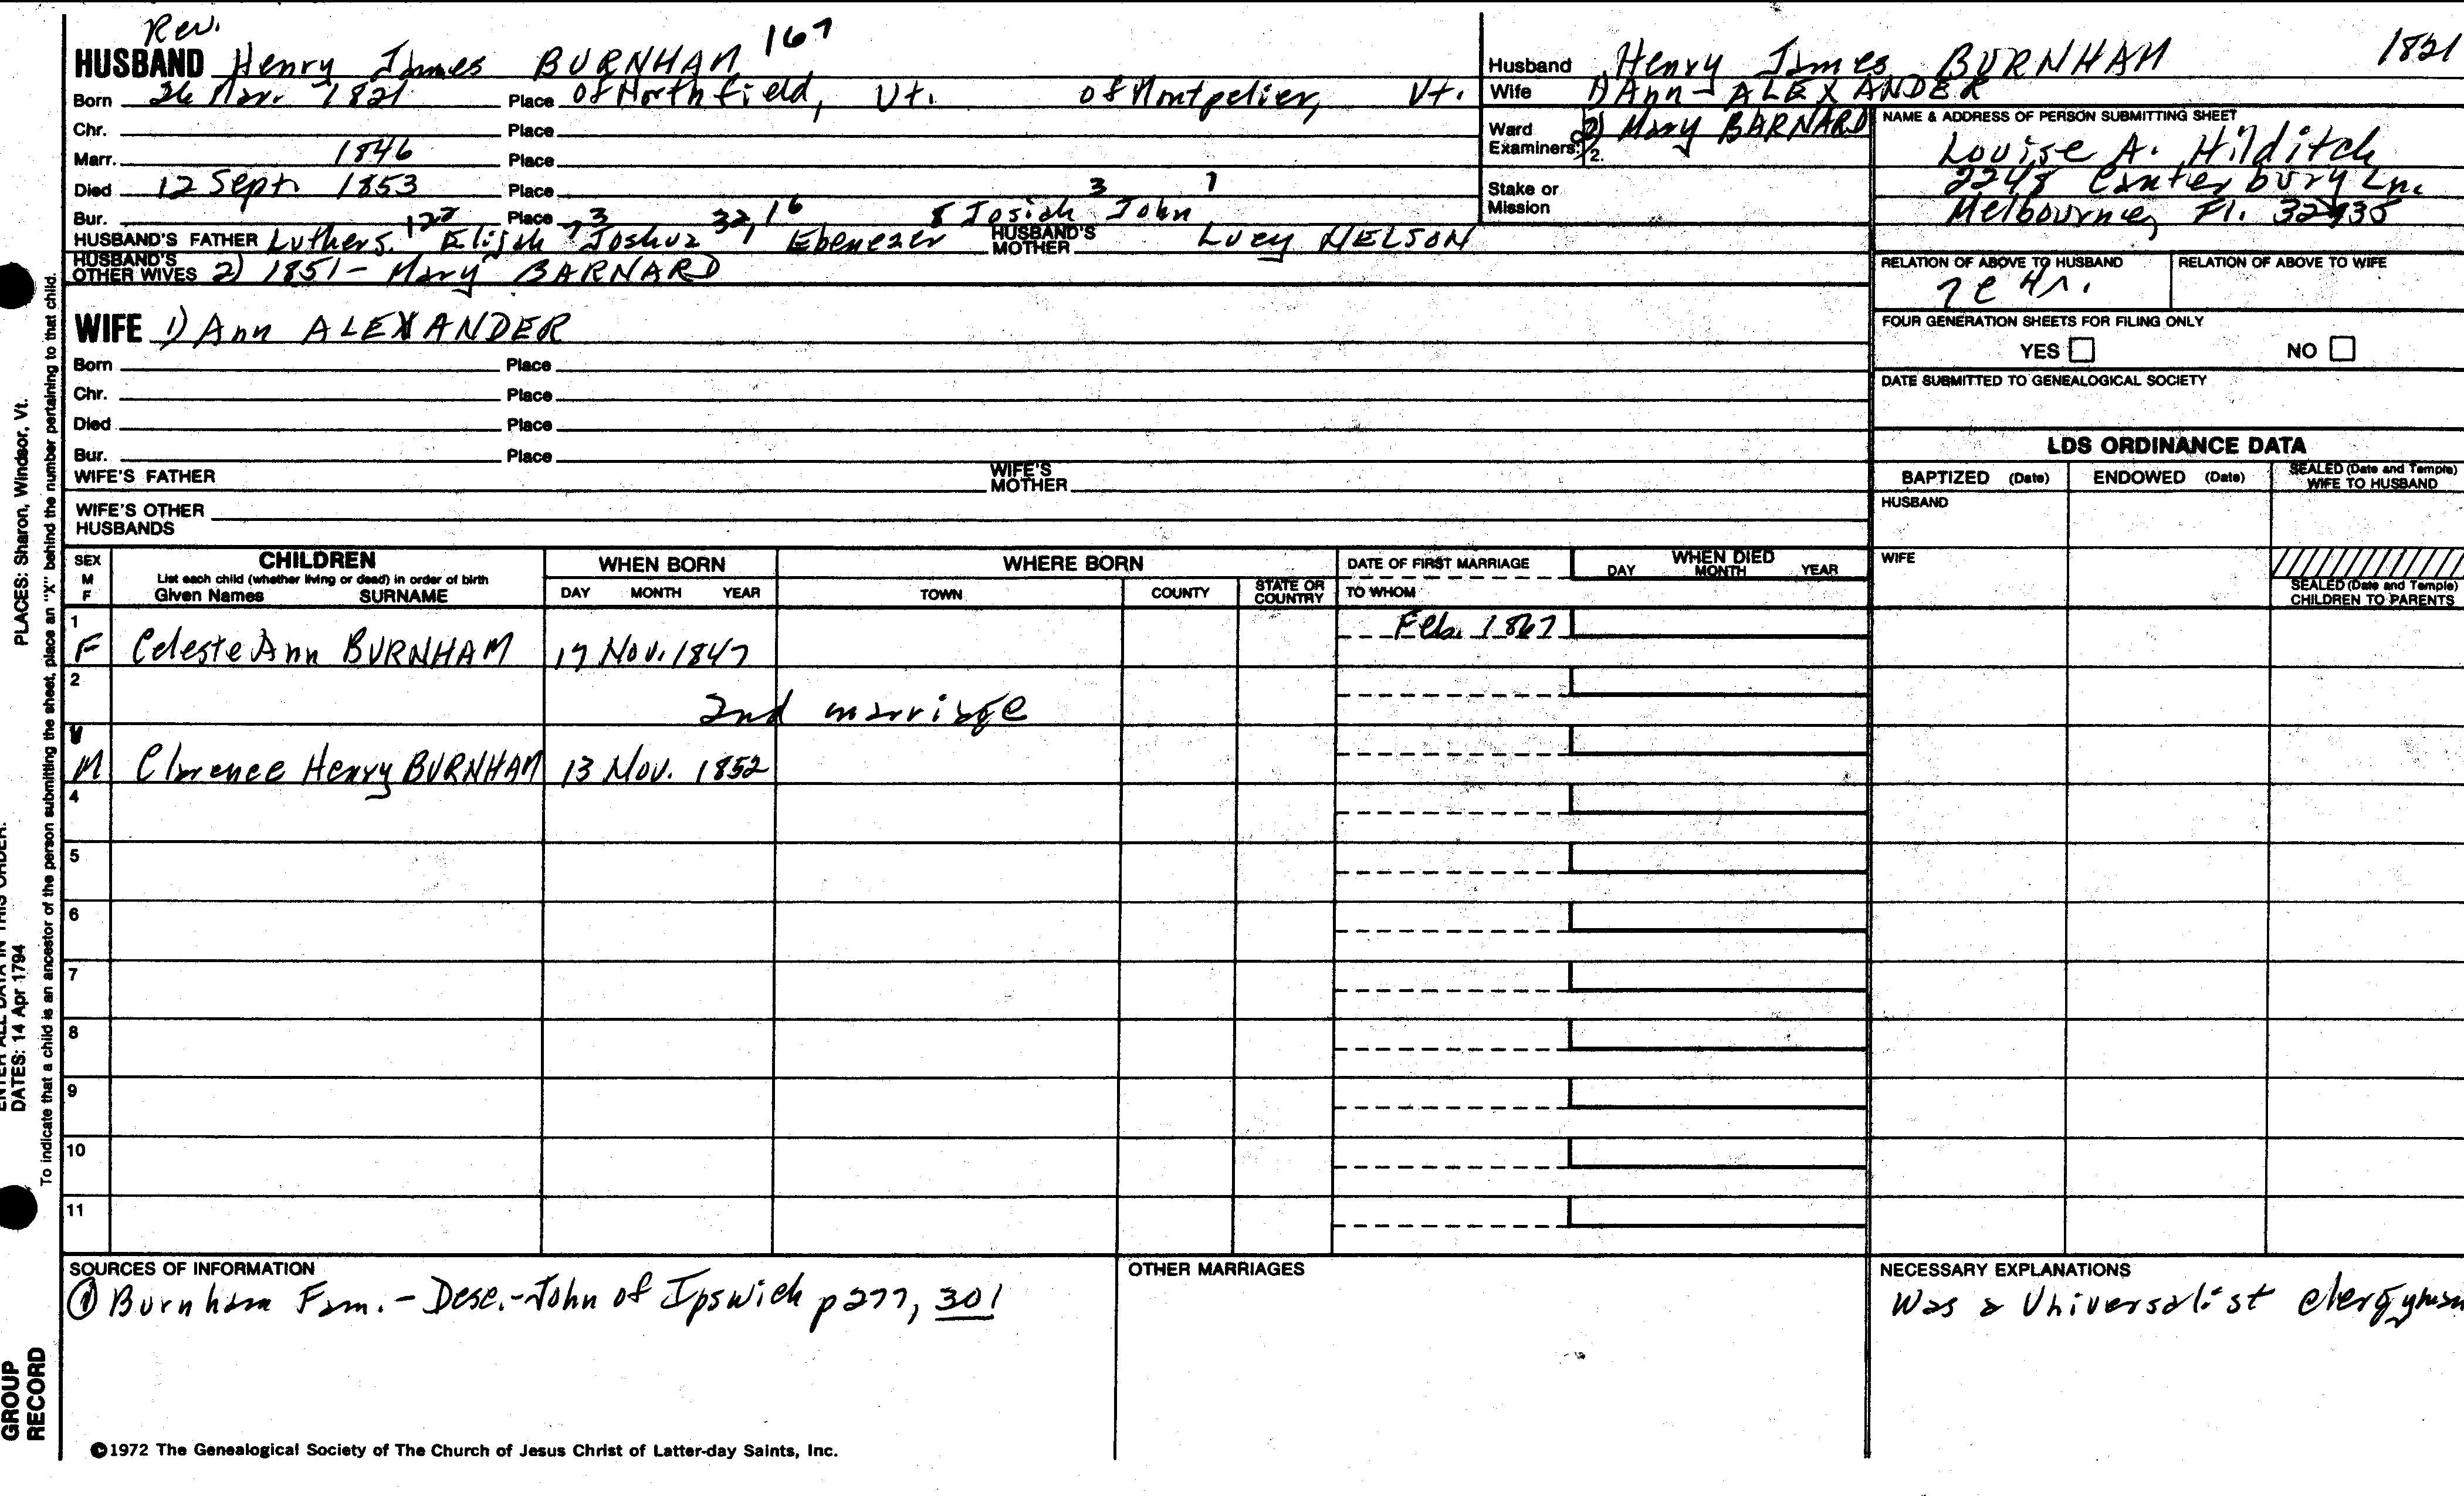 Rev.
HUSBAND Henry James BURNHAM 167
Born 26 Mar. 1821 Place of Northfield, Vt. of Montpelier, Vt.
Chr. Place
Marr. 1846 Place
Died 12 Sept. 1853 Place
Bur. Place
HUSBAND'S FATHER Luther 5. 122 Elijah 73 Joshua 32, 16 Ebenezer 8 Josiah 3 John 1 HUSBAND'S MOTHER Lucy NELSON
HUSBAND'S OTHER WIVES 2) 1851 - Mary BARNARD
WIFE 1) Ann ALEXANDER
Born Place
Chr. Place
Died Place
Bur. Place
WIFE'S FATHER WIFE'S MOTHER
WIFE'S OTHER HUSBANDS
Husband Henry James BURNHAM 1821
Wife 1) Ann - ALEXANDER
Ward 2) Mary BARNARD
Examiners: 2.
Stake or Mission
NAME & ADDRESS OF PERSON SUBMITTING SHEET
Louise A. Hilditch
2248 Canterbury Ln.
Melbourne, Fl. 32935
RELATION OF ABOVE TO HUSBAND RELATION OF ABOVE TO WIFE
7c 4r.
FOUR GENERATION SHEETS FOR FILING ONLY
YES NO
DATE SUBMITTED TO GENEALOGICAL SOCIETY
LDS ORDINANCE DATA
BAPTIZED (Date) ENDOWED (Date) SEALED (Date and Temple) WIFE TO HUSBAND
HUSBAND
WIFE
SEALED (Date and Temple) CHILDREN TO PARENTS
SEX M F CHILDREN WHEN BORN WHERE BORN DATE OF FIRST MARRIAGE WHEN DIED
List each child (whether living or dead) in order of birth
Given Names SURNAME DAY MONTH YEAR TOWN COUNTY STATE OR COUNTRY TO WHOM DAY MONTH YEAR
1 F Celeste Ann BURNHAM 17 Nov. 1847 Feb. 1867
2 2nd marriage
M Clarence Henry BURNHAM 13 Nov. 1852
4
5
6
7
8
9
10
11
SOURCES OF INFORMATION
① Burnham Fam. - Desc. - John of Ipswich p 277, 301
OTHER MARRIAGES
NECESSARY EXPLANATIONS
Was a Universalist clergyman
©1972 The Genealogical Society of The Church of Jesus Christ of Latter-day Saints, Inc.
PLACES: Sharon, Windsor, Vt.
To indicate that a child is an ancestor of the person submitting the sheet, place an "X" behind the number pertaining to that child.
ENTER ALL DATA IN THIS ORDER:
DATES: 14 Apr 1794
GROUP RECORD